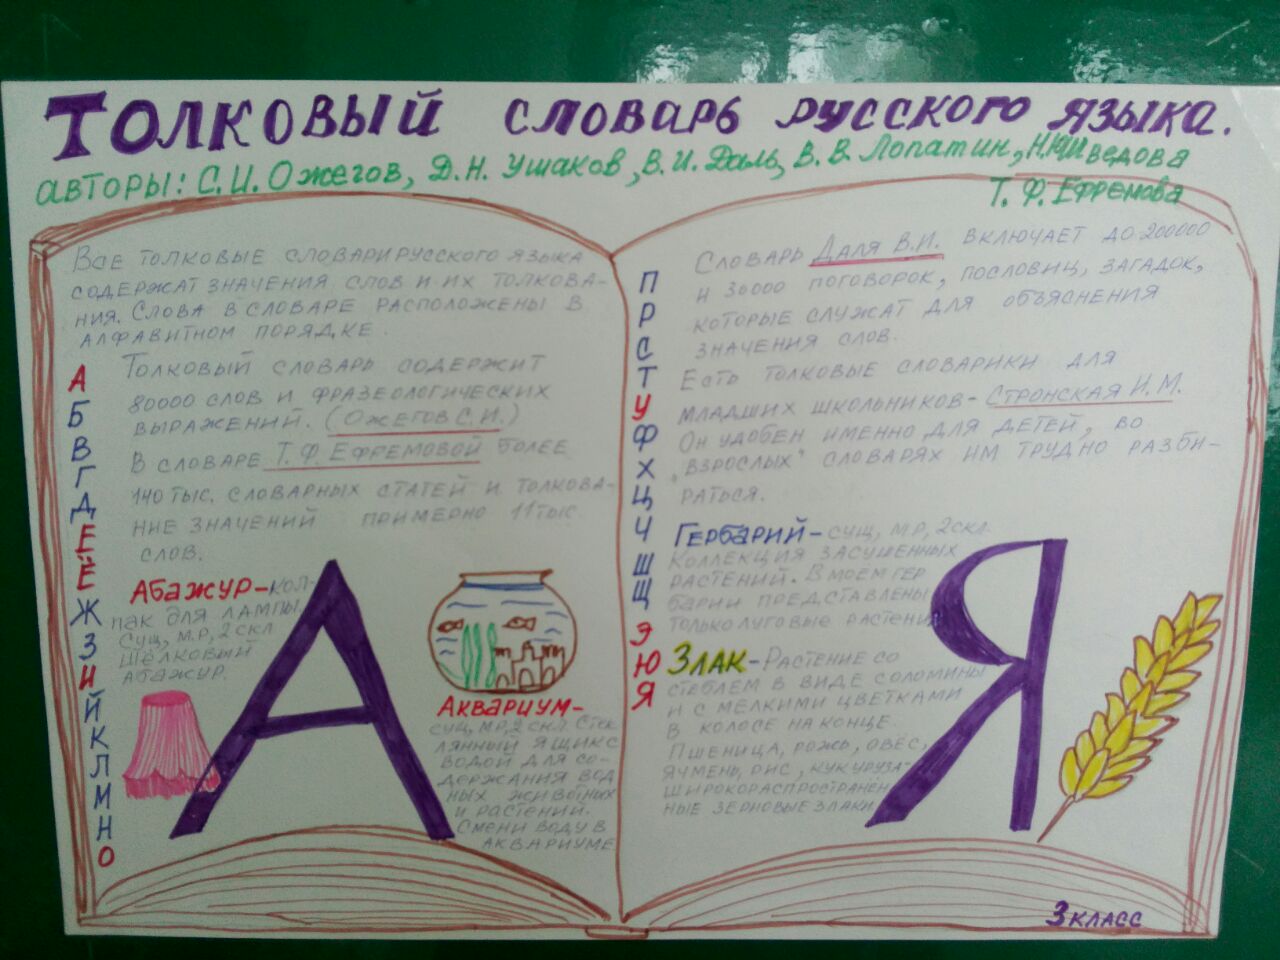 Толковый словарь русского языка.
авторы: С.И. Ожегов, Д.Н. Ушаков, В.И. Даль, В.В. Лопатин, Н. Шведова
Т. Ф. Ефремова
Все толковые словари русского языка
содержат значения слов и их толкова-
ния. Слова в словаре расположены в
алфавитном порядке.
Толковый словарь содержит
80000 слов и фразеологических
выражений. (Ожегов С.И.)
В словаре Т.Ф. Ефремовой более
140 тыс. словарных статей и толкова-
ние значений примерно 11 тыс.
слов.
А
Б
В
Г
Д
Е
Ё
Ж
З
И
Й
К
Л
М
Н
О
Абажур-кол-
пак для лампы.
Сущ, м.р, 2 скл
Шёлковый
абажур.
А
Аквариум-
сущ, м.р, 2 скл. Стек
лянный ящик с
водой для со-
держания вод
ных животных
и растений.
Смени воду в
аквариуме
П
Р
С
Т
У
Ф
Х
Ц
Ч
Ш
Щ
Э
Ю
Я
Словарь Даля В.И. включает до 200000
и 30000 поговорок, пословиц, загадок,
которые служат для объяснения
значения слов.
Есть толковые словарики для
младших школьников- Стронская И.М.
Он удобен именно для детей, во
„взрослых" словарях им трудно разби-
раться.
Гербарий-сущ, м.р, 2 скл.
Коллекция засушенных
растений. В моем гер
барии представлены
только луговые растения
Злак-Растение со
стеблем в виде соломины
и с мелкими цветками
в колосе на конце.
Пшеница, рожь, овёс,
ячмень, рис, кукуруза-
широкораспространён
ные зерновые злаки
Я
3 класс